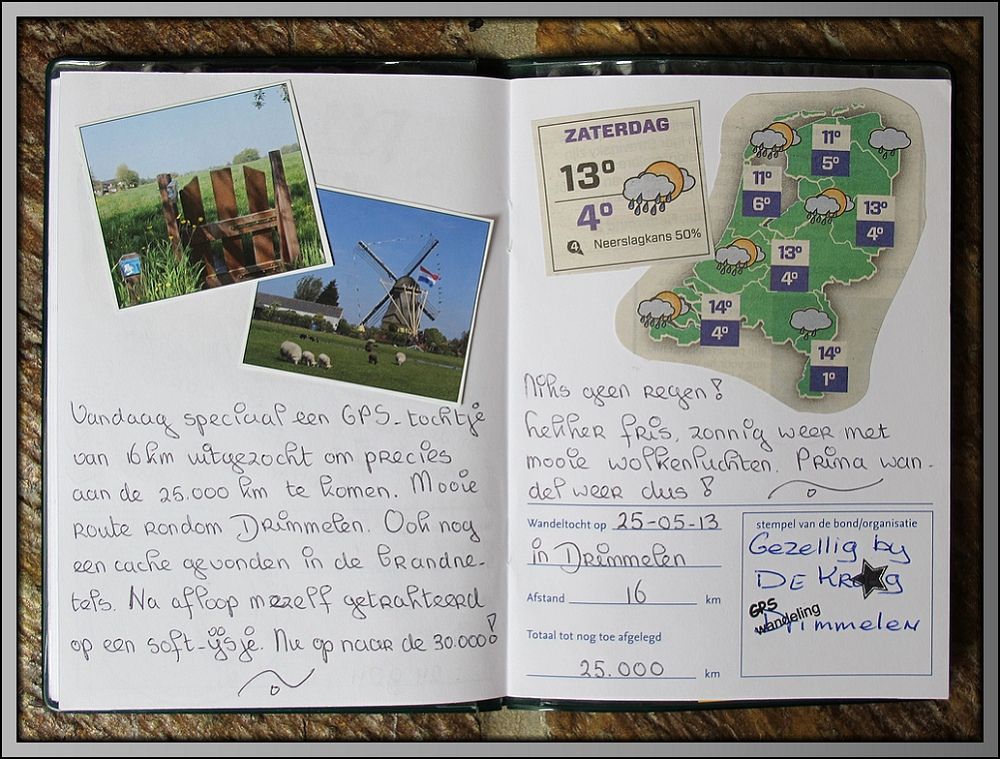 Vandaag speciaal een GPS-tochtje
van 16 km uitgezocht om precies
aan de 25.000 km te komen. Mooie
route rondom Drimmelen. Ook nog
een cache gevonden in de brandne-
tels. Na afloop mezelf getrakteerd
op een soft-ijsje. Nu op naar de 30.000!
ZATERDAG
13°
4°
4 Neerslagkans 50%
11°
5°
11°
6°
13°
4°
13°
4°
14°
4°
14°
1°
Niks geen regen!
Lekker fris, zonnig weer met
mooie wolkenluchten. Prima wan-
del weer dus!
Wandeltocht op 25-05-13
in Drimmelen
Afstand 16 km
Totaal tot nog toe afgelegd
25.000 km
stempel van de bond/organisatie
Gezellig by
De Kraag
GPS
wandeling
Drimmelen